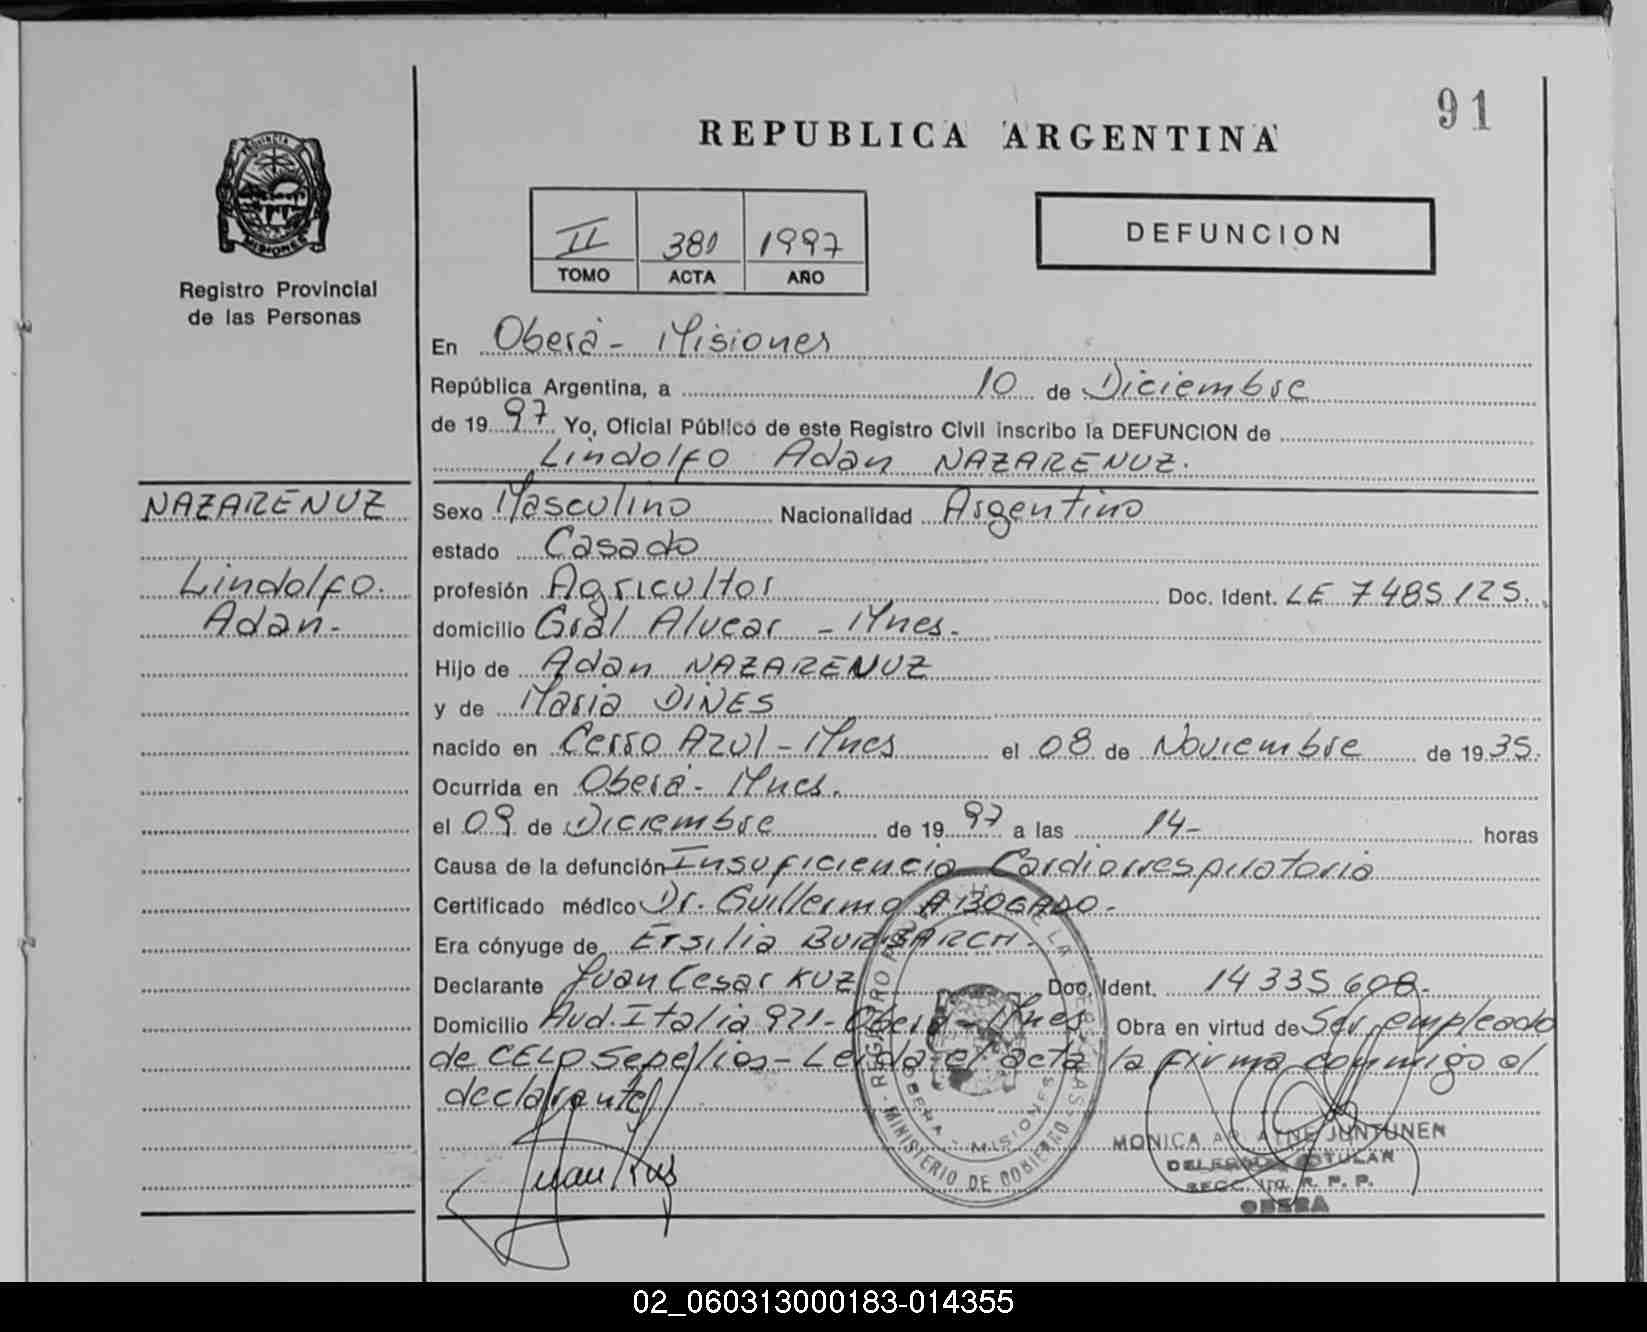 91
REPUBLICA ARGENTINA
PROVINCIA DE
MISIONES
Registro Provincial
de las Personas
II 380 1997
TOMO ACTA AÑO
DEFUNCION
En Oberá - Misiones
República Argentina, a 10 de Diciembre
de 19 97 Yo, Oficial Público de este Registro Civil inscribo la DEFUNCION de
Lindolfo Adan NAZARENUZ.
NAZARENUZ
Lindolfo.
Adan.-
Sexo Masculino Nacionalidad Argentino
estado Casado
profesión Agricultor Doc. Ident. LE 7485125.
domicilio Gral Alvear - Mnes.
Hijo de Adan NAZARENUZ
y de Maria DINES
nacido en Cerro Azul - Mnes el 08 de Noviembre de 19 35.
Ocurrida en Oberá - Mnes.
el 09 de Diciembre de 19 97 a las 14- horas
Causa de la defunción Insuficiencia Cardiorrespiratoria
Certificado médico Dr. Guillermo ABOGADO.
Era cónyuge de Ersilia BURBARCH.
Declarante Juan Cesar KUZ Doc. Ident. 14 335 608.
Domicilio Avd. Italia 921 - Oberá - Mnes Obra en virtud de Ser empleado
de CELO Sepelios - Leida el acta la firma conmigo el
declarante
Juan Kus
MINISTERIO DE GOBIERNO
OBERA - MISIONES
MONICA JUNTUNEN
TITULAR
SECC. 1ra. R. P. P.
OBERA
02_060313000183-014355